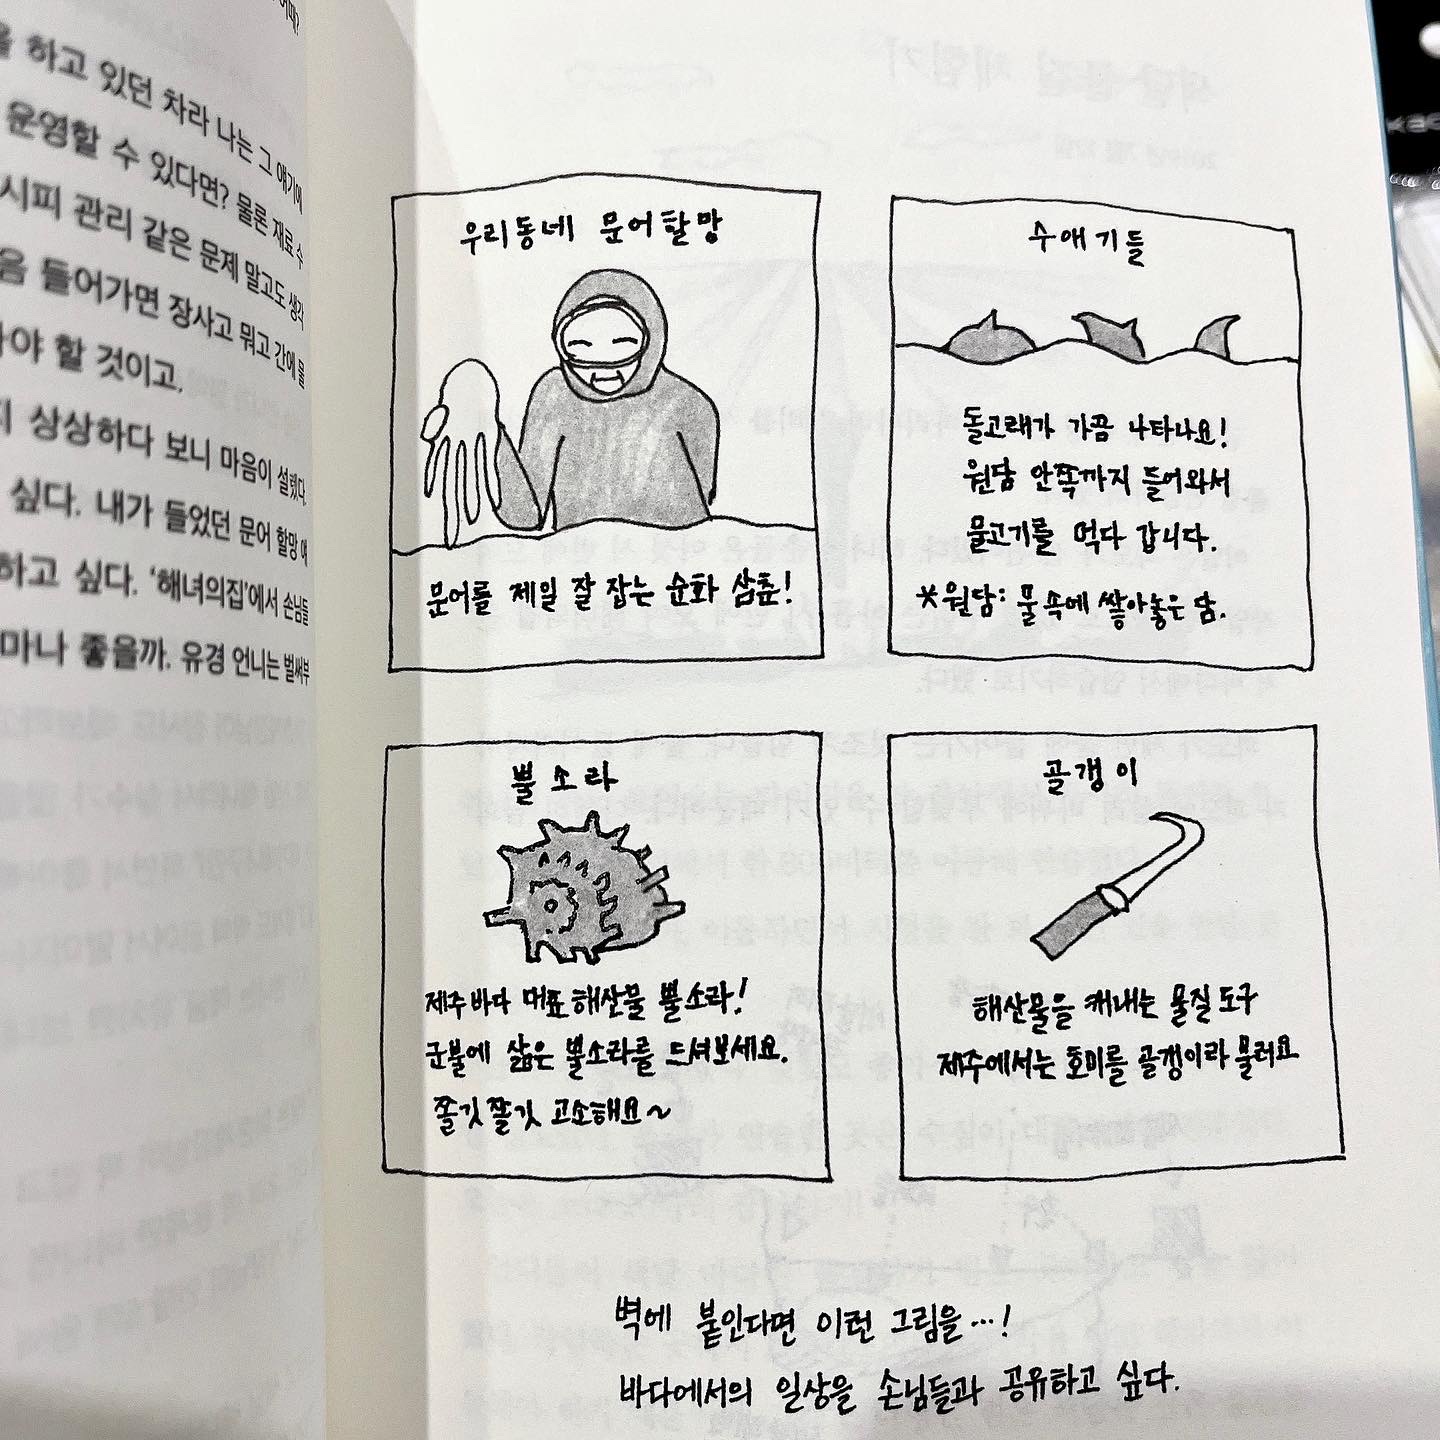 어때?
을 하고 있던 차라 나는 그 얘기에
운영할 수 있다면? 물론 재료 수
시피 관리 같은 문제 말고도 생각
음 들어가면 장사고 뭐고 간에 물
야 할 것이고.
지 상상하다 보니 마음이 설렜다.
싶다. 내가 들었던 문어 할망 얘
하고 싶다. ‘해녀의집’에서 손님들
마나 좋을까. 유경 언니는 벌써부
우리동네 문어할망
문어를 제일 잘 잡는 순화 삼춘!
수애기들
돌고래가 가끔 나타나요!
원담 안쪽까지 들어와서
물고기를 먹다 갑니다.
*원담: 물속에 쌓아놓은 담.
뿔소라
제주바다 대표 해산물 뿔소라!
군불에 삶은 뿔소라를 드셔보세요.
쫄깃쫄깃 고소해요~
골갱이
해산물을 캐내는 물질도구
제주에서는 호미를 골갱이라 불러요
벽에 붙인다면 이런 그림을…!
바다에서의 일상을 손님들과 공유하고 싶다.